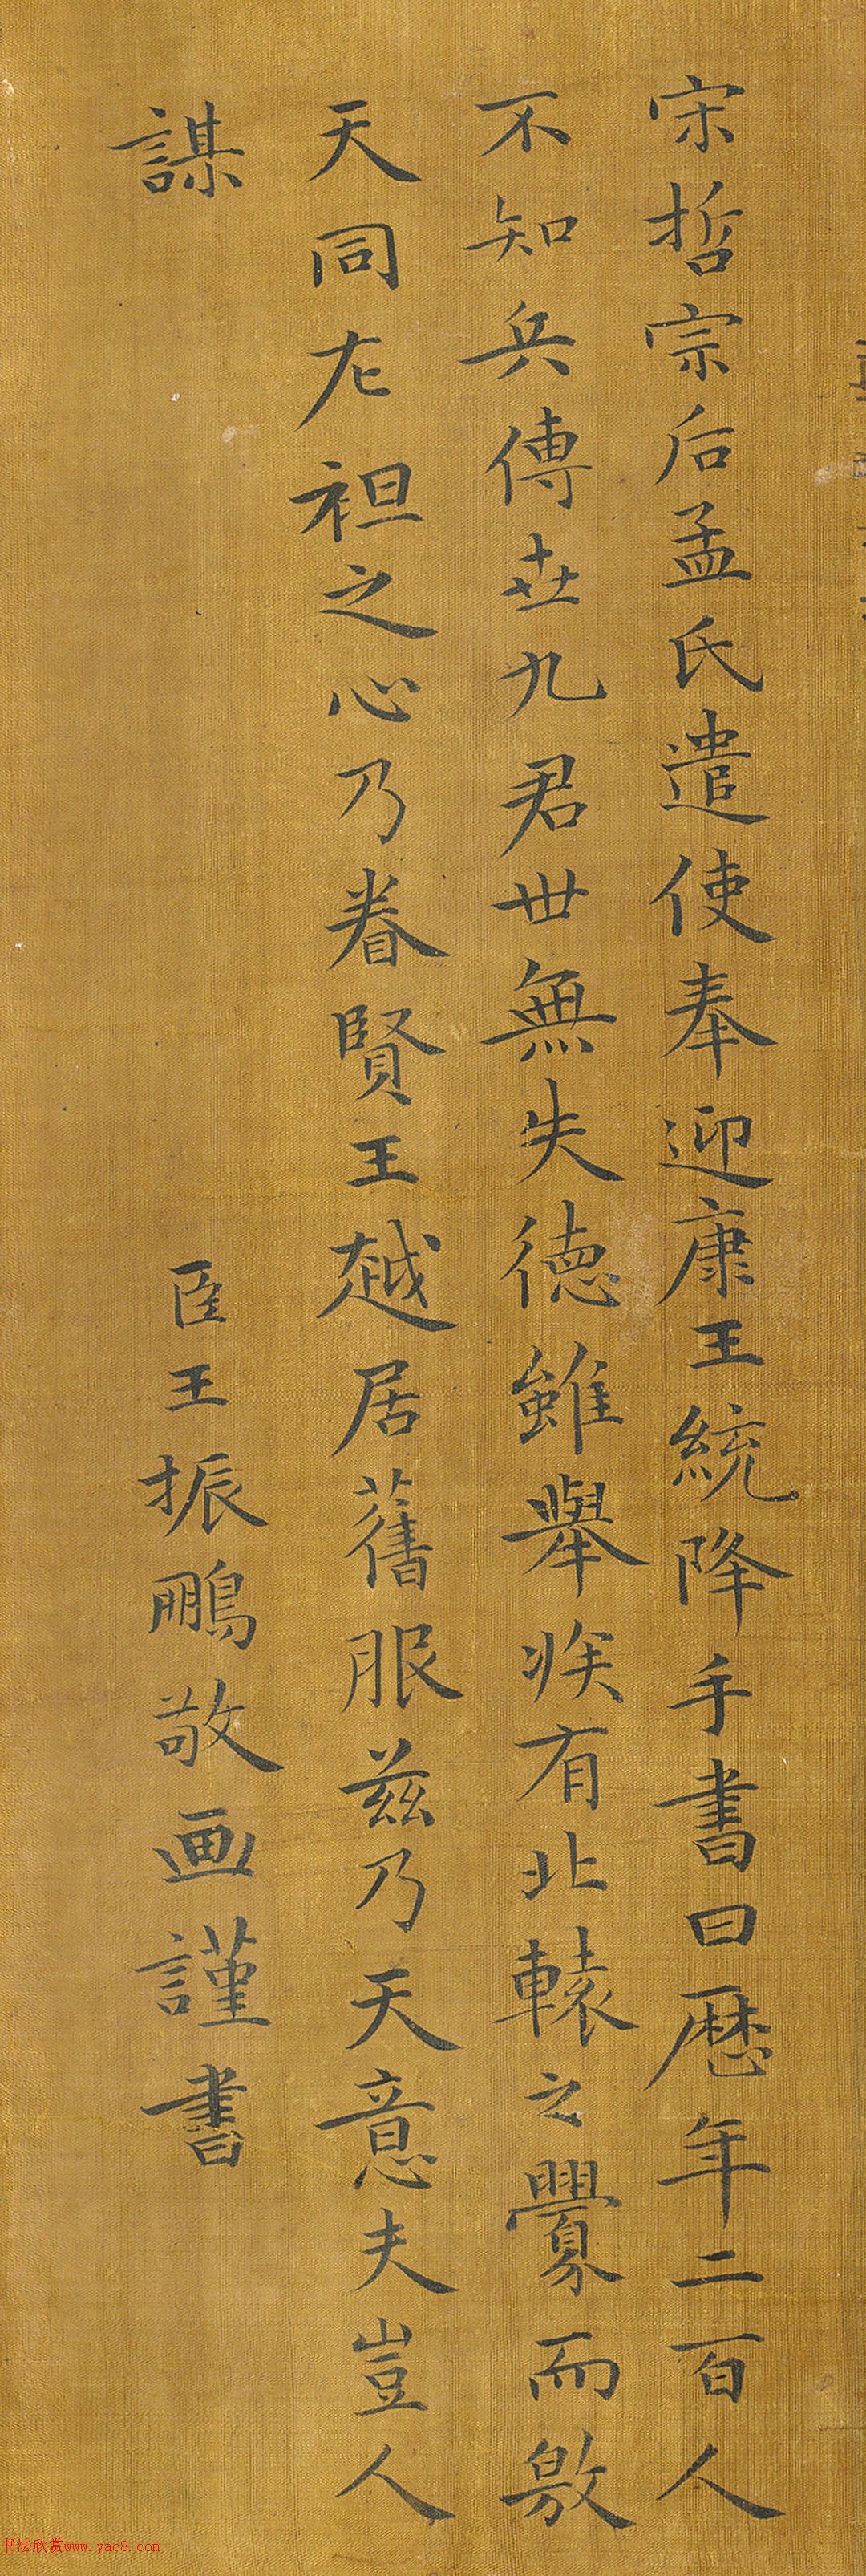 宋哲宗后孟氏遣使奉迎康王統降手書曰歷年二百人
不知兵傳世九君世無失德雖舉族有北轅之釁而敷
天同左袒之心乃眷賢王越居舊服茲乃天意夫豈人
謀
臣王振鵬敬画謹書
书法欣赏www.yac8.com